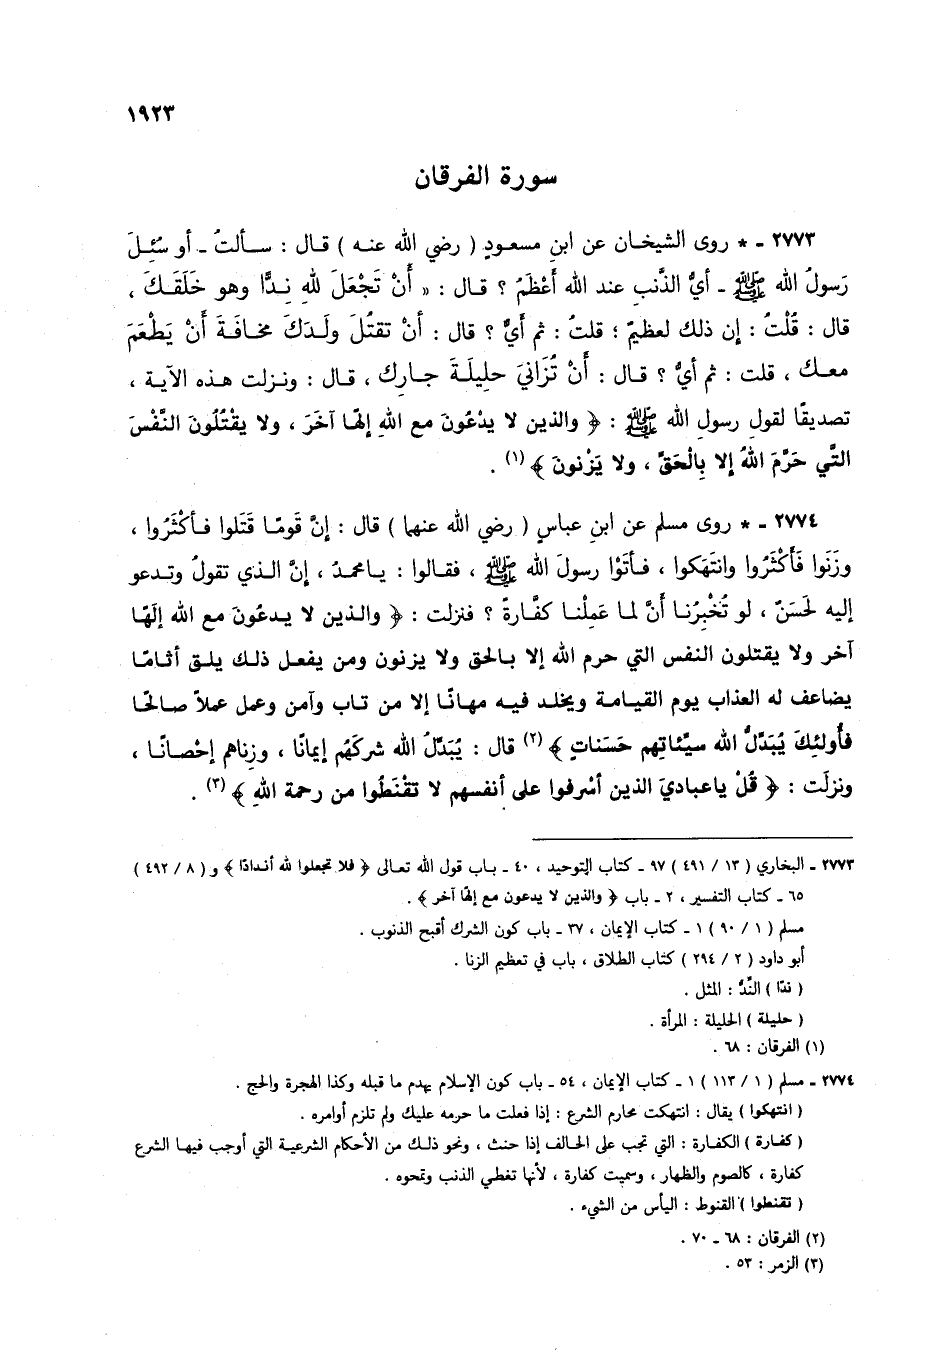 ١٩٢٣
سورة الفرقان
٢٧٧٣ - * روى الشيخان عن ابنِ مسعودٍ ( رضي الله عنه ) قال : سألتُ - أو سُئِلَ
رَسولُ الله ﷺ - أيُّ الذَّنبِ عند الله أَعْظَمُ ؟ قال : « أَنْ تَجْعَلَ لله نِدًّا وهو خَلَقَكَ ،
قال : قُلْتُ : إن ذلك لعظيمٌ ؛ قلتُ : ثم أَيٌّ ؟ قال : أنْ تقتُلَ ولَدَكَ مخافَةَ أَنْ يَطْعَمَ
معك ، قلت : ثم أيُّ ؟ قال : أَنْ تُزَانَي حليلَةَ جارِك ، قال : ونزلت هذه الآية ،
تصديقًا لقولِ رسولِ الله ﷺ : ﴿ والذين لا يدْعُونَ مع اللهِ إلهًا آخَرَ ، ولا يقْتُلُونَ النَّفْسَ
التَّي حَرَّمَ اللهُ إلا بِالْحَقِّ ، ولا يَزْنونَ ﴾ (١) .
٢٧٧٤ - * روى مسلم عن ابنِ عباسٍ ( رضي الله عنهما ) قال : إنَّ قَومًا قَتَلوا فأكْثَرُوا ،
وزَنَوا فَأَكْثَرُوا وانتَهَكوا ، فأتَوْا رسولَ الله ﷺ ، فقالوا : يامحمدُ ، إنَّ الذي تقولُ وتدعو
إليه لَحَسَنٌ ، لو تُخْبِرُنا أنَّ لما عَمِلْنا كفَّارةً ؟ فنزلت : ﴿ والذين لا يدعُونَ مع الله إلَهًا
آخر ولا يقتلون النفس التي حرم الله إلا بالحق ولا يزنون ومن يفعل ذلك يلق أثامًا
يضاعف له العذاب يوم القيامة ويخلد فيه مهانًا إلا من تاب وآمن وعمل عملاً صالحًا
فأُولئِكَ يُبَدِّلُ الله سيِّئاتِهم حَسَناتٍ ﴾ (٢) قال : يُبَدِّلُ الله شركَهُم إيمانًا ، وزِناهم إحْصانًا ،
ونزلَت : ﴿ قُلْ ياعباديَ الذين أسْرفوا على أنفسهم لا تقْنَطُوا من رحمة اللهِ ﴾ (٣) .
٢٧٧٣ - البخاري ( ١٣ / ٤٩١ ) ٩٧ - كتاب التوحيد ، ٤٠ - باب قول الله تعالى ﴿ فلا تجعلوا لله أندادًا ﴾ و ( ٨ / ٤٩٢ )
٦٥ - كتاب التفسير ، ٢ - باب ﴿ والذين لا يدعون مع إلهًا آخر ﴾ .
مسلم ( ١ / ٩٠ ) ١ - كتاب الإيمان ، ٣٧ - باب كون الشرك أقبح الذنوب .
أبو داود ( ٢ / ٢٩٤ ) كتاب الطلاق ، باب في تعظيم الزنا .
( ندًا ) النِّدُّ : المثل .
( حليلة ) الحليلة : المرأة .
(١) الفرقان : ٦٨ .
٢٧٧٤ - مسلم ( ١ / ١١٣ ) ١ - كتاب الإيمان ، ٥٤ - باب كون الإسلام يهدم ما قبله وكذا الهجرة والحج .
( انتهكوا ) يقال : انتهكت محارم الشرع : إذا فعلت ما حرمه عليك ولم تلزم أوامره .
( كفارة ) الكفارة : التي تجب على الحالف إذا حنث ، ونحو ذلك من الأحكام الشرعية التي أوجب فيها الشرع
كفارة ، كالصوم والظهار ، وسميت كفارة ، لأنها تغطي الذنب وتمحوه .
( تقنطوا ) القنوط : اليأس من الشيء .
(٢) الفرقان : ٦٨ - ٧٠ .
(٣) الزمر : ٥٣ .